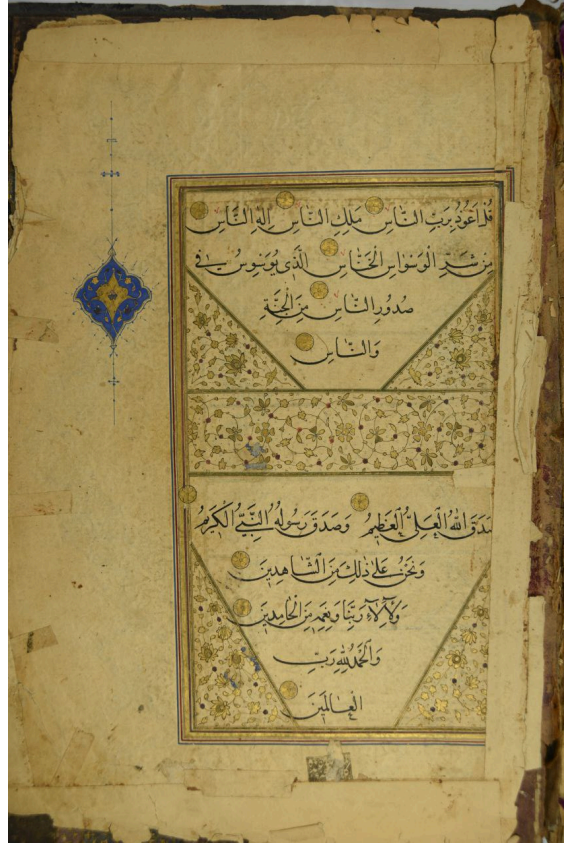 قُلْ اَعُوذُ بِرَبِّ النَّاسِ مَلِكِ النَّاسِ اِلٰهِ النَّاسِ
مِنْ شَرِّ الْوَسْوَاسِ الْخَنَّاسِ الَّذِى يُوَسْوِسُ فِى
صُدُورِ النَّاسِ مِنَ الْجِنَّةِ
وَالنَّاسِ
صَدَقَ اللهُ الْعَلِىُّ الْعَظِيمُ وَصَدَقَ رَسُولُهُ النَّبِىُّ الْكَرِيمُ
وَنَحْنُ عَلٰى ذٰلِكَ مِنَ الشَّاهِدِينَ
وَلِآلَآءِ رَبِّنَا وَنِعَمِهِ مِنَ الْحَامِدِينَ
وَالْحَمْدُ لِلّٰهِ رَبِّ
الْعَالَمِينَ